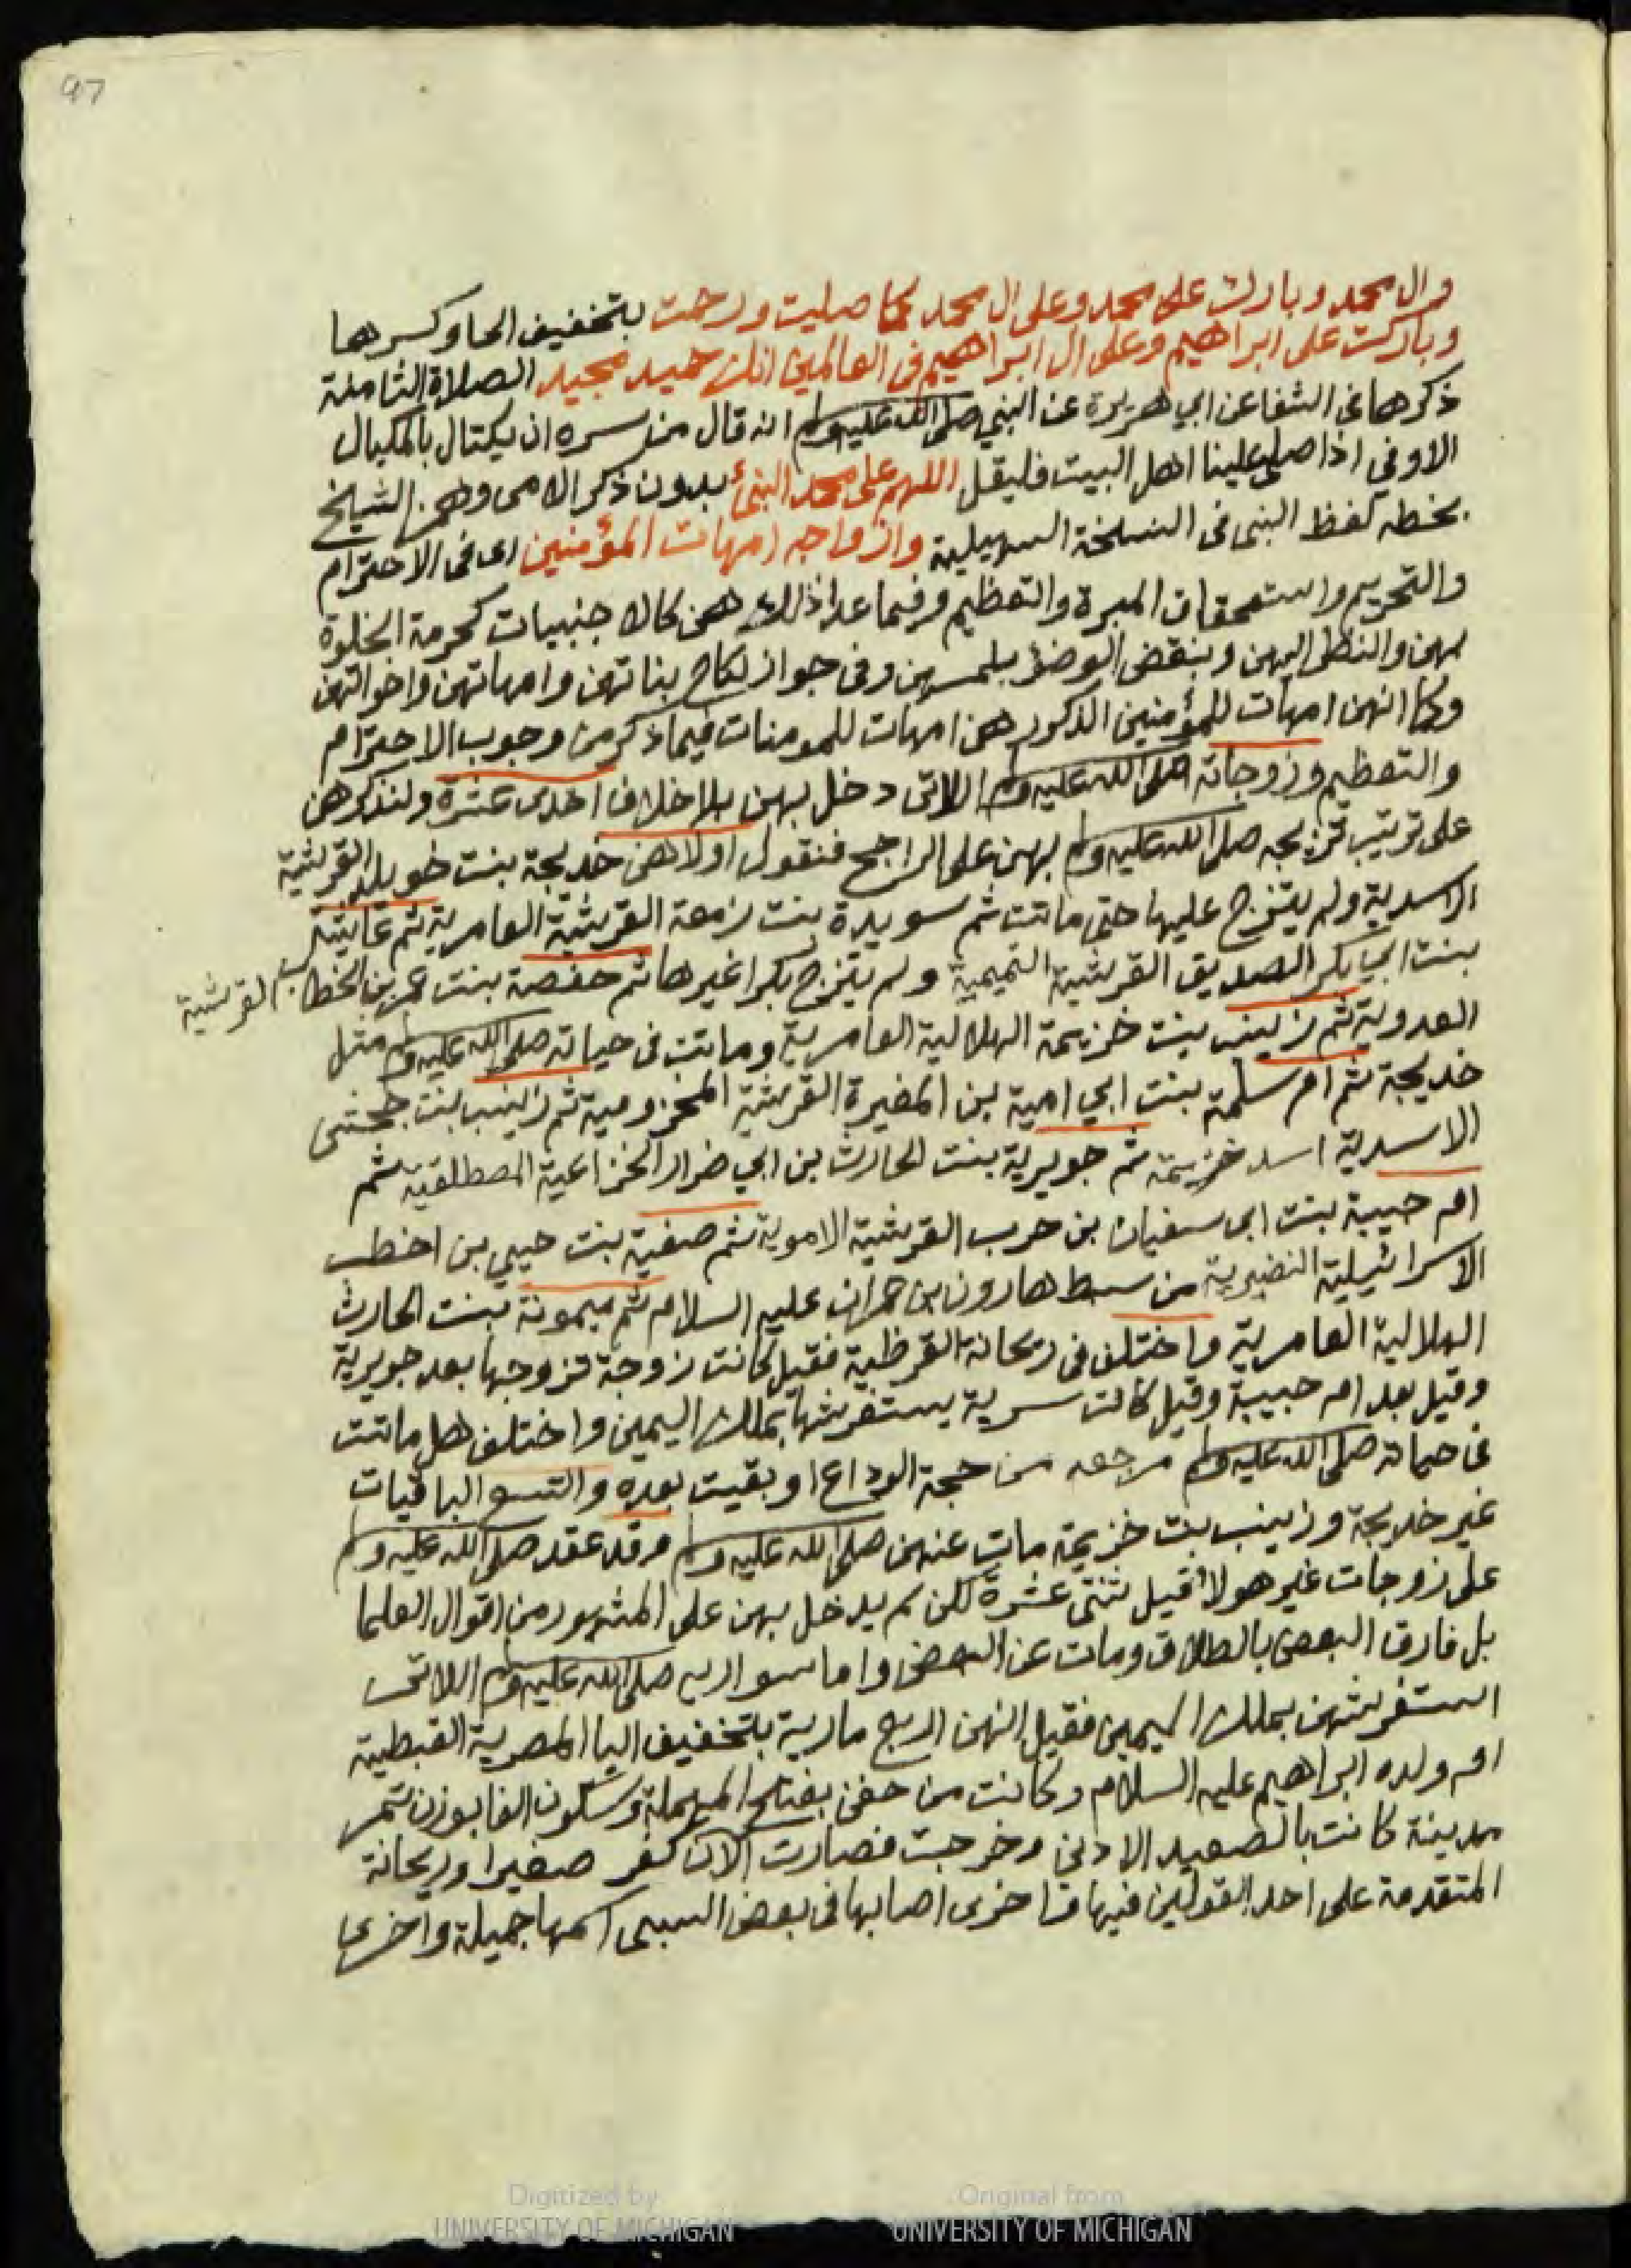 97
وال محمد وبارك على محمد وعلى ال محمد كما صليت ورحمت بتخفيف الحا وكسرها
وباركت على ابراهيم وعلى ال ابراهيم فى العالمين انك حميد مجيد الصلاة الثامنة
ذكرها فى الشفا عن ابي هريرة عن النبي صلى الله عليه وسلم انه قال من سره ان يكتال بالمكيال
الاوفي اذا صلى علينا اهل البيت فليقل اللهم على محمد النبئ بدون ذكر الامى وهمز الشيخ
بخطه لفظ النبى فى النسخة السهيلية وازواجه امهات المؤمنين اى فى الاحترام
والتحريم واستحقاق المبرة والتعظيم وفيما عدا ذلك هن كالاجنبيات كحرمة الخلوة
بهن والنظر اليهن وبنقض الوضؤ بلمسهن وفى جواز نكاح بناتهن وامهاتهن واخواتهن
وكما انهن امهات للمؤمنين الذكور هن امهات للمومنات فيما ذكر من وجوب الاحترام
والتعظيم وزوجاته صلى الله عليه وسلم اللاتى دخل بهن بلا خلاف احدى عشرة ولنذكرهن
على ترتيب تزويجه صلى الله عليه وسلم بهن على الراجح فنقول اولاهن خديجة بنت خويلد القرشية
الاسدية ولم يتزوج عليها حتى ماتت ثم سويدة بنت زمعة القرشية العامرية ثم عايشة
بنت ابي بكر الصديق القرشية التميمية ولم يتزوج بكرا غيرها ثم حفصة بنت عمر بن الخطاب القرشية
العدوية ثم زينب بنت خزيمة الهلالية العامرية وماتت فى حياته صلى الله عليه وسلم مثل
خديجة ثم ام سلمة بنت ابي امية بن المغيرة القرشية المخزومية ثم زينب بنت جحش
الاسدية اسد خزيمة ثم جويرية بنت الحارث بن ابي ضرار الخزاعية المصطلقية ثم
ام حبيبة بنت ابى سفيان بن حرب القرشية الاموية ثم صفية بنت حيي بن اخطب
الاسرائيلية النضيرية من سبط هارون بن عمران عليه السلام ثم ميمونة بنت الحارث
الهلالية العامرية واختلف فى ريحانة القرظية فقيل كانت زوجة تزوجها بعد جويرية
وقيل بعد ام حبيبة وقيل كانت سرية يستفرشها بملك اليمين واختلف هل ماتت
فى حياته صلى الله عليه وسلم مرجعه من حجة الوداع او بقيت بعده والتسع الباقيات
غير خديجة وزينب بنت خزيمة مات عنهن صلى الله عليه وسلم وقد عقد صلى الله عليه وسلم
على زوجات غير هولاء قيل ثنتى عشرة لكن لم يدخل بهن على المشهور من اقوال العلما
بل فارق البعض بالطلاق ومات عن البعض واما سواريه صلى الله عليه وسلم اللاتى
استفرشهن بملك اليمين فقيل انهن اربع مارية بتخفيف اليا المصرية القبطية
ام ولده ابراهيم عليه السلام وكانت من حفن بفتح المهملة وسكون الفا بوزن تمر
مدينة كانت بالصعيد الادنى وخربت فصارت الان كفر صغيرا وريحانة
المتقدمة على احد القولين فيها واخرى اصابها فى بعض السبى اسمها جميلة واخرى
Digitized by UNIVERSITY OF MICHIGAN
Original from UNIVERSITY OF MICHIGAN